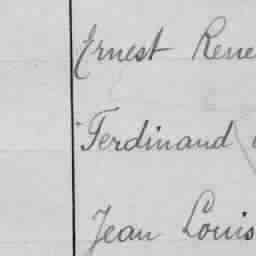 Ernest Rene
Ferdinand
Jean Louis